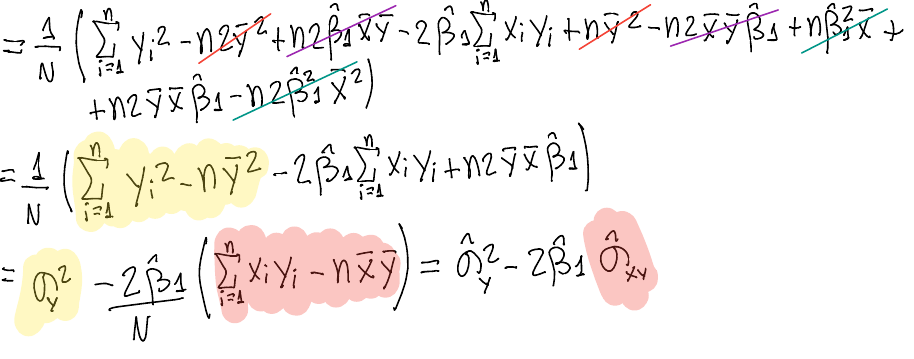 = 1/N ( ∑_{i=1}^{n} yᵢ² - n2ȳ² + n2β̂₁x̄ȳ - 2β̂₁∑_{i=1}^{n} xᵢyᵢ + nȳ² - n2x̄ȳβ̂₁ + nβ̂₁²x̄ +
+ n2ȳx̄β̂₁ - n2β̂₁²x̄² )
= 1/N ( ∑_{i=1}^{n} yᵢ² - nȳ² - 2β̂₁∑_{i=1}^{n} xᵢyᵢ + n2ȳx̄β̂₁ )
= σ_y² - 2β̂₁/N ( ∑_{i=1}^{n} xᵢyᵢ - nx̄ȳ ) = σ̂_y² - 2β̂₁ σ̂_xy